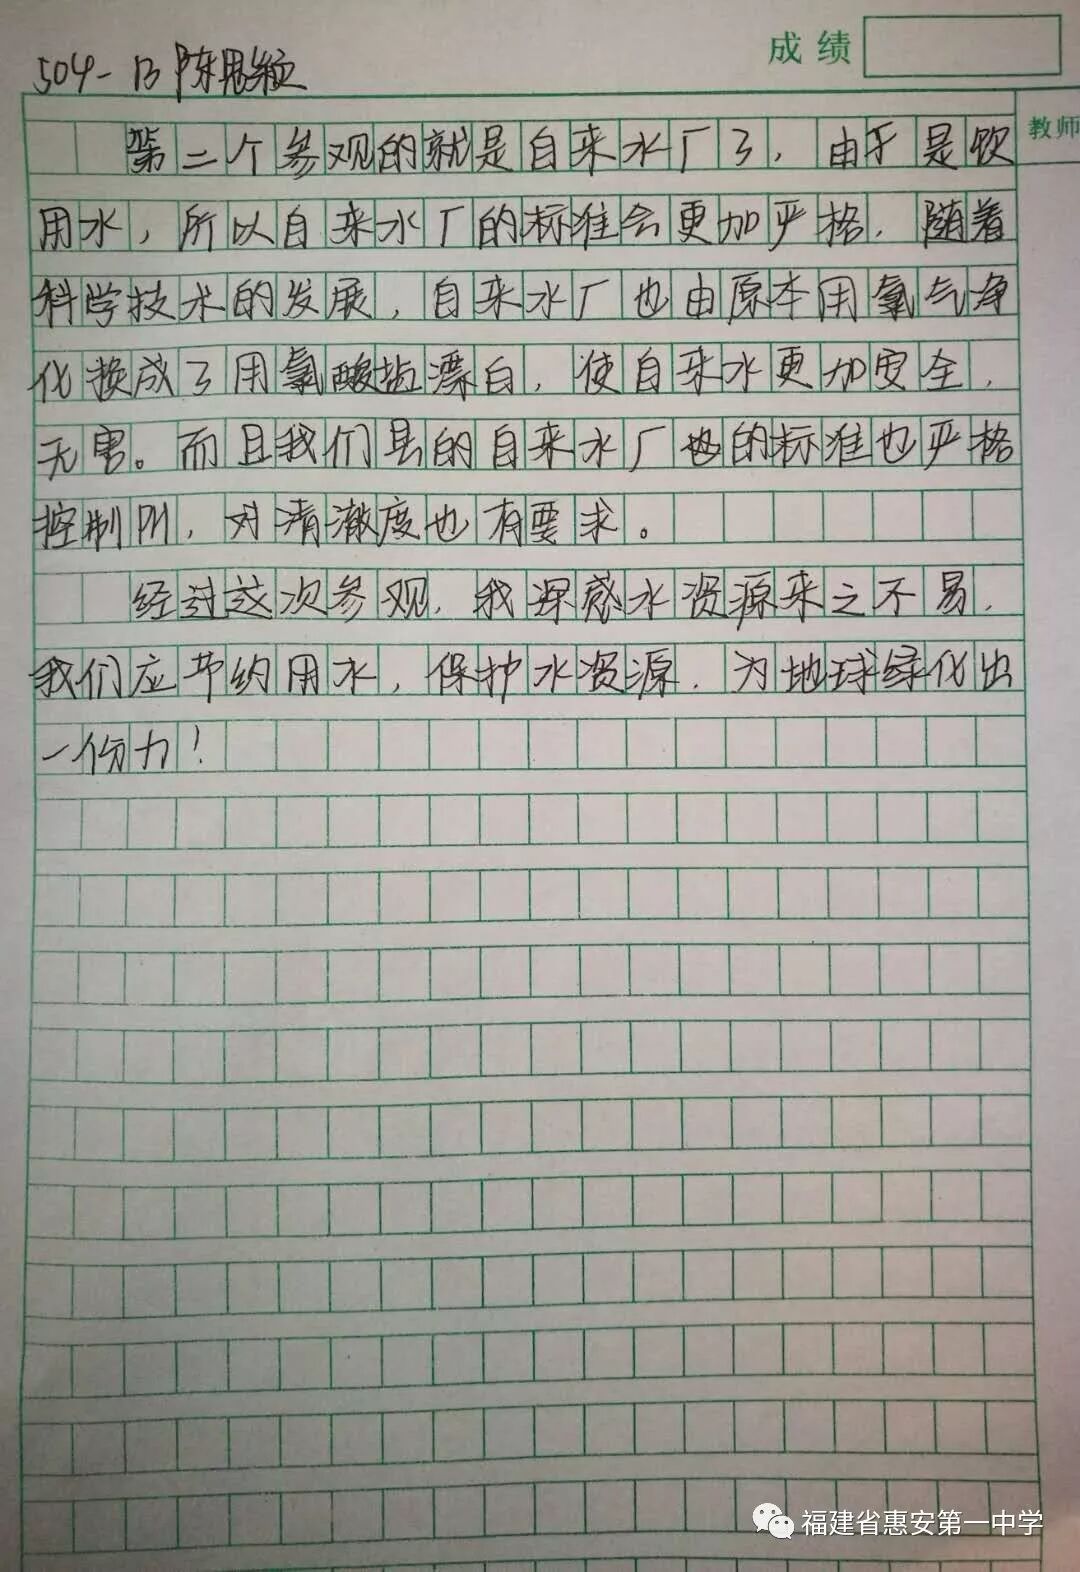 成绩
504-13 陈思颖
教师
第二个参观的就是自来水厂了，由于是饮
用水，所以自来水厂的标准会更加严格．随着
科学技术的发展，自来水厂也由原本用氯气净
化换成了用氯酸盐漂白，使自来水更加安全，
无害。而且我们县的自来水厂的标准也严格
控制PH，对清澈度也有要求。
经过这次参观，我深感水资源来之不易，
我们应节约用水，保护水资源．为地球绿化出
一份力！
福建省惠安第一中学